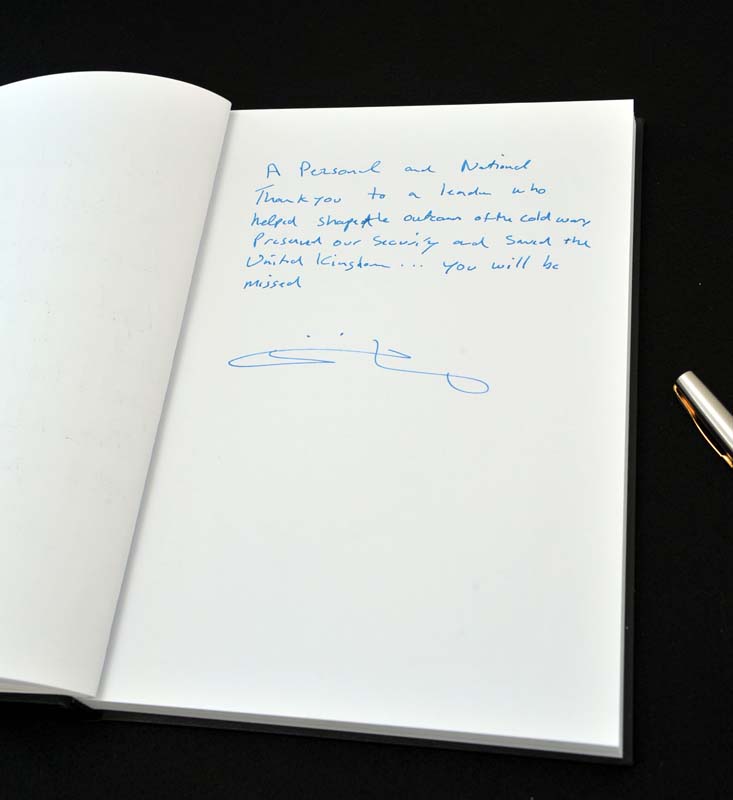 A Personal and National
Thank you to a leader who
helped shape the outcome of the cold war
Preserved our security and saved the
United Kingdom... you will be
missed